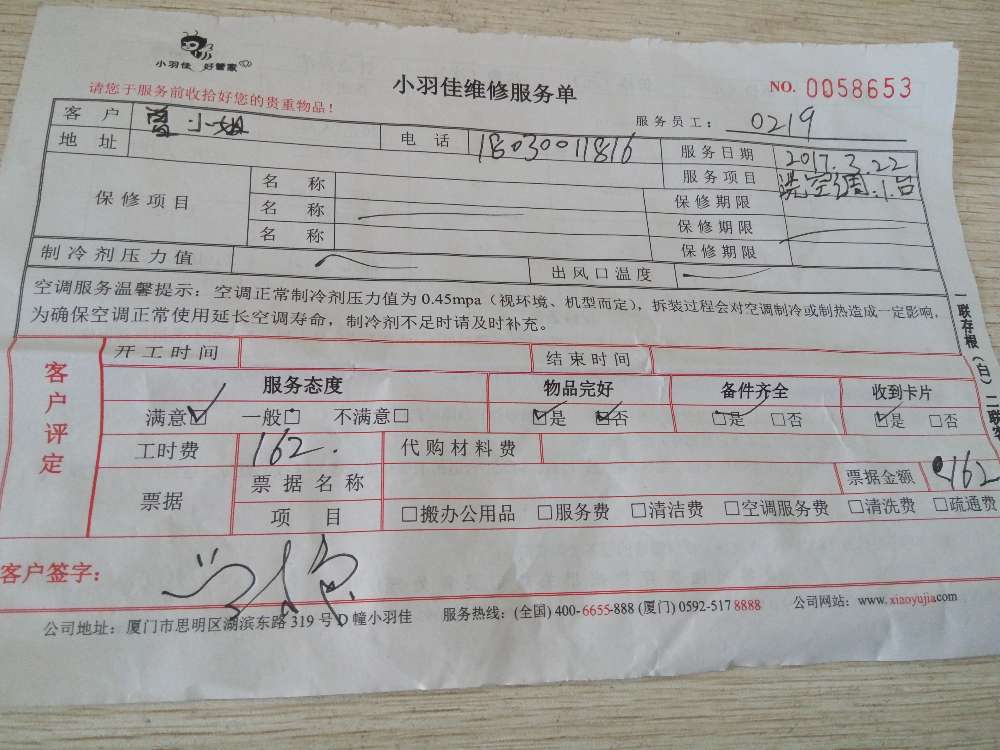 小羽佳 好管家
小羽佳维修服务单
NO. 0058653
请您于服务前收拾好您的贵重物品！
服务员工： 0219
客户 曾小姐
地址 电话 18030011816 服务日期 2017.3.22
服务项目 洗空调:1台
保修项目 名称 保修期限
名称 保修期限
名称 保修期限
制冷剂压力值 出风口温度
空调服务温馨提示：空调正常制冷剂压力值为 0.45mpa（视环境、机型而定），拆装过程会对空调制冷或制热造成一定影响，
为确保空调正常使用延长空调寿命，制冷剂不足时请及时补充。
客户评定
开工时间 结束时间
服务态度 物品完好 备件齐全 收到卡片
满意☑ 一般□ 不满意□ ☑是 ☑否 ☑是 □否 ☑是 □否
工时费 162. 代购材料费
票据 票据名称 票据金额 162
项目 □搬办公用品 □服务费 □清洁费 □空调服务费 □清洗费 □疏通费
客户签字：
公司地址：厦门市思明区湖滨东路 319 号 D 幢小羽佳 服务热线：(全国) 400-6655-888 (厦门) 0592-517 8888 公司网站：www.xiaoyujia.com
一联存根（白）二联客